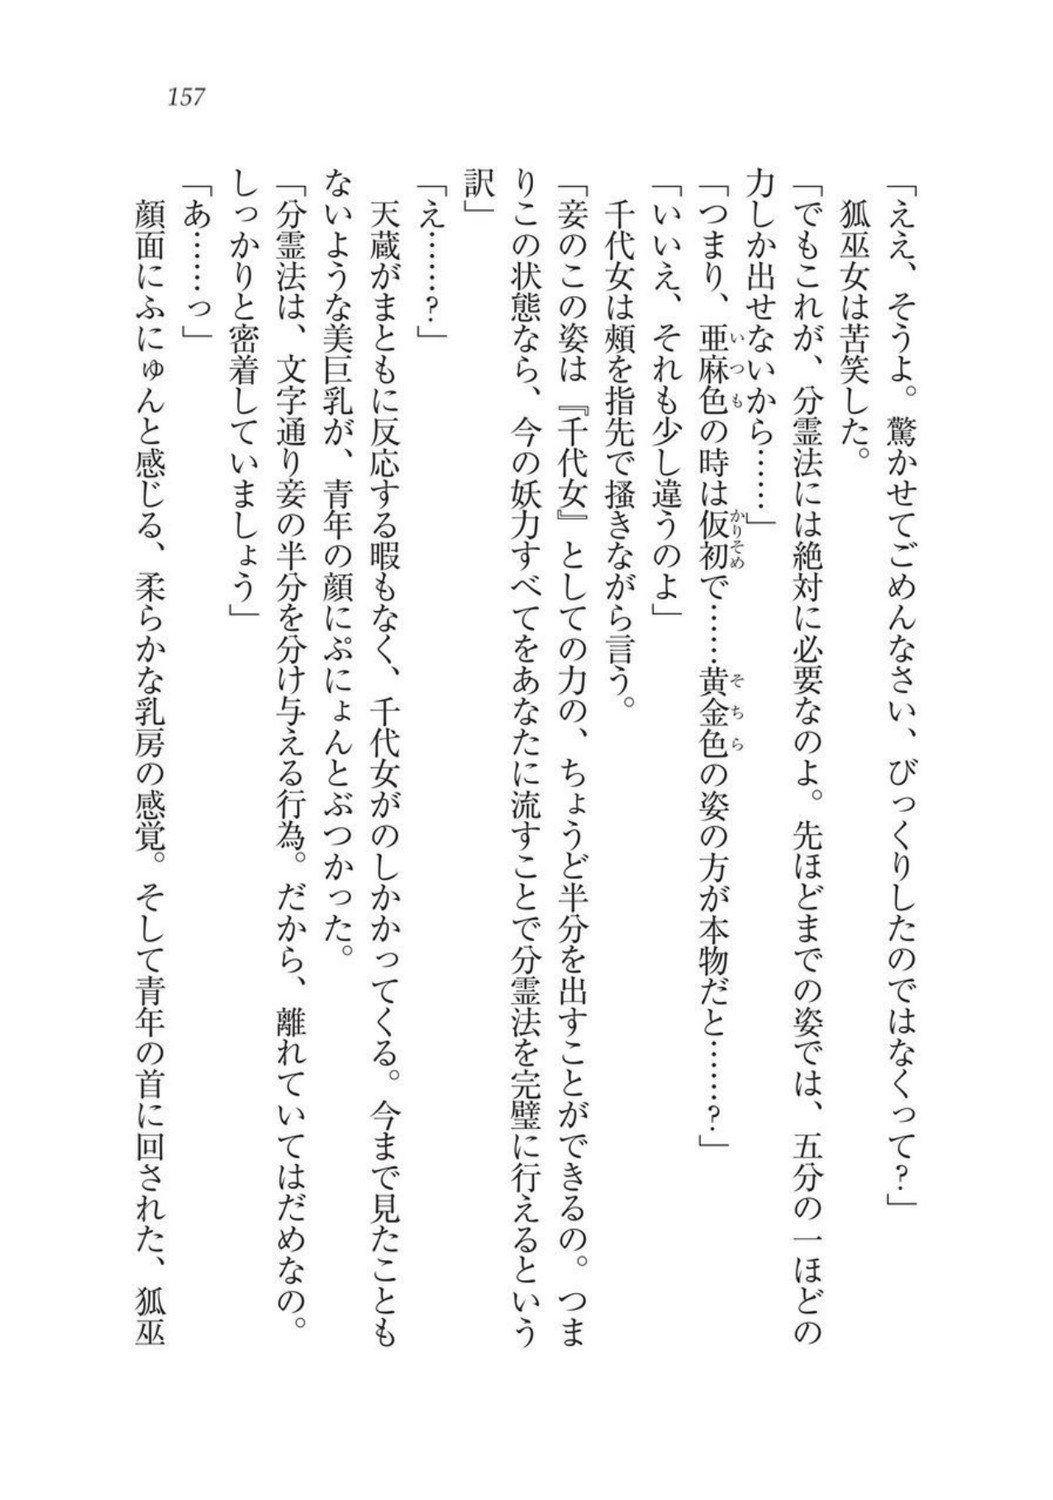 157
「ええ、そうよ。驚かせてごめんなさい、びっくりしたのではなくって?」
狐巫女は苦笑した。
「でもこれが、分霊法には絶対に必要なのよ。先ほどまでの姿では、五分の一ほどの
力しか出せないから……」
「つまり、亜麻色いつもの時は仮初かりそめで……黄金色そちらの姿の方が本物だと……?」
「いいえ、それも少し違うのよ」
千代女は頰を指先で掻きながら言う。
「妾のこの姿は『千代女』としての力の、ちょうど半分を出すことができるの。つま
りこの状態なら、今の妖力すべてをあなたに流すことで分霊法を完璧に行えるという
訳」
「え……?」
天蔵がまともに反応する暇もなく、千代女がのしかかってくる。今まで見たことも
ないような美巨乳が、青年の顔にぷにょんとぶつかった。
「分霊法は、文字通り妾の半分を分け与える行為。だから、離れていてはだめなの。
しっかりと密着していましょう」
「あ……っ」
顔面にふにゅんと感じる、柔らかな乳房の感覚。そして青年の首に回された、狐巫